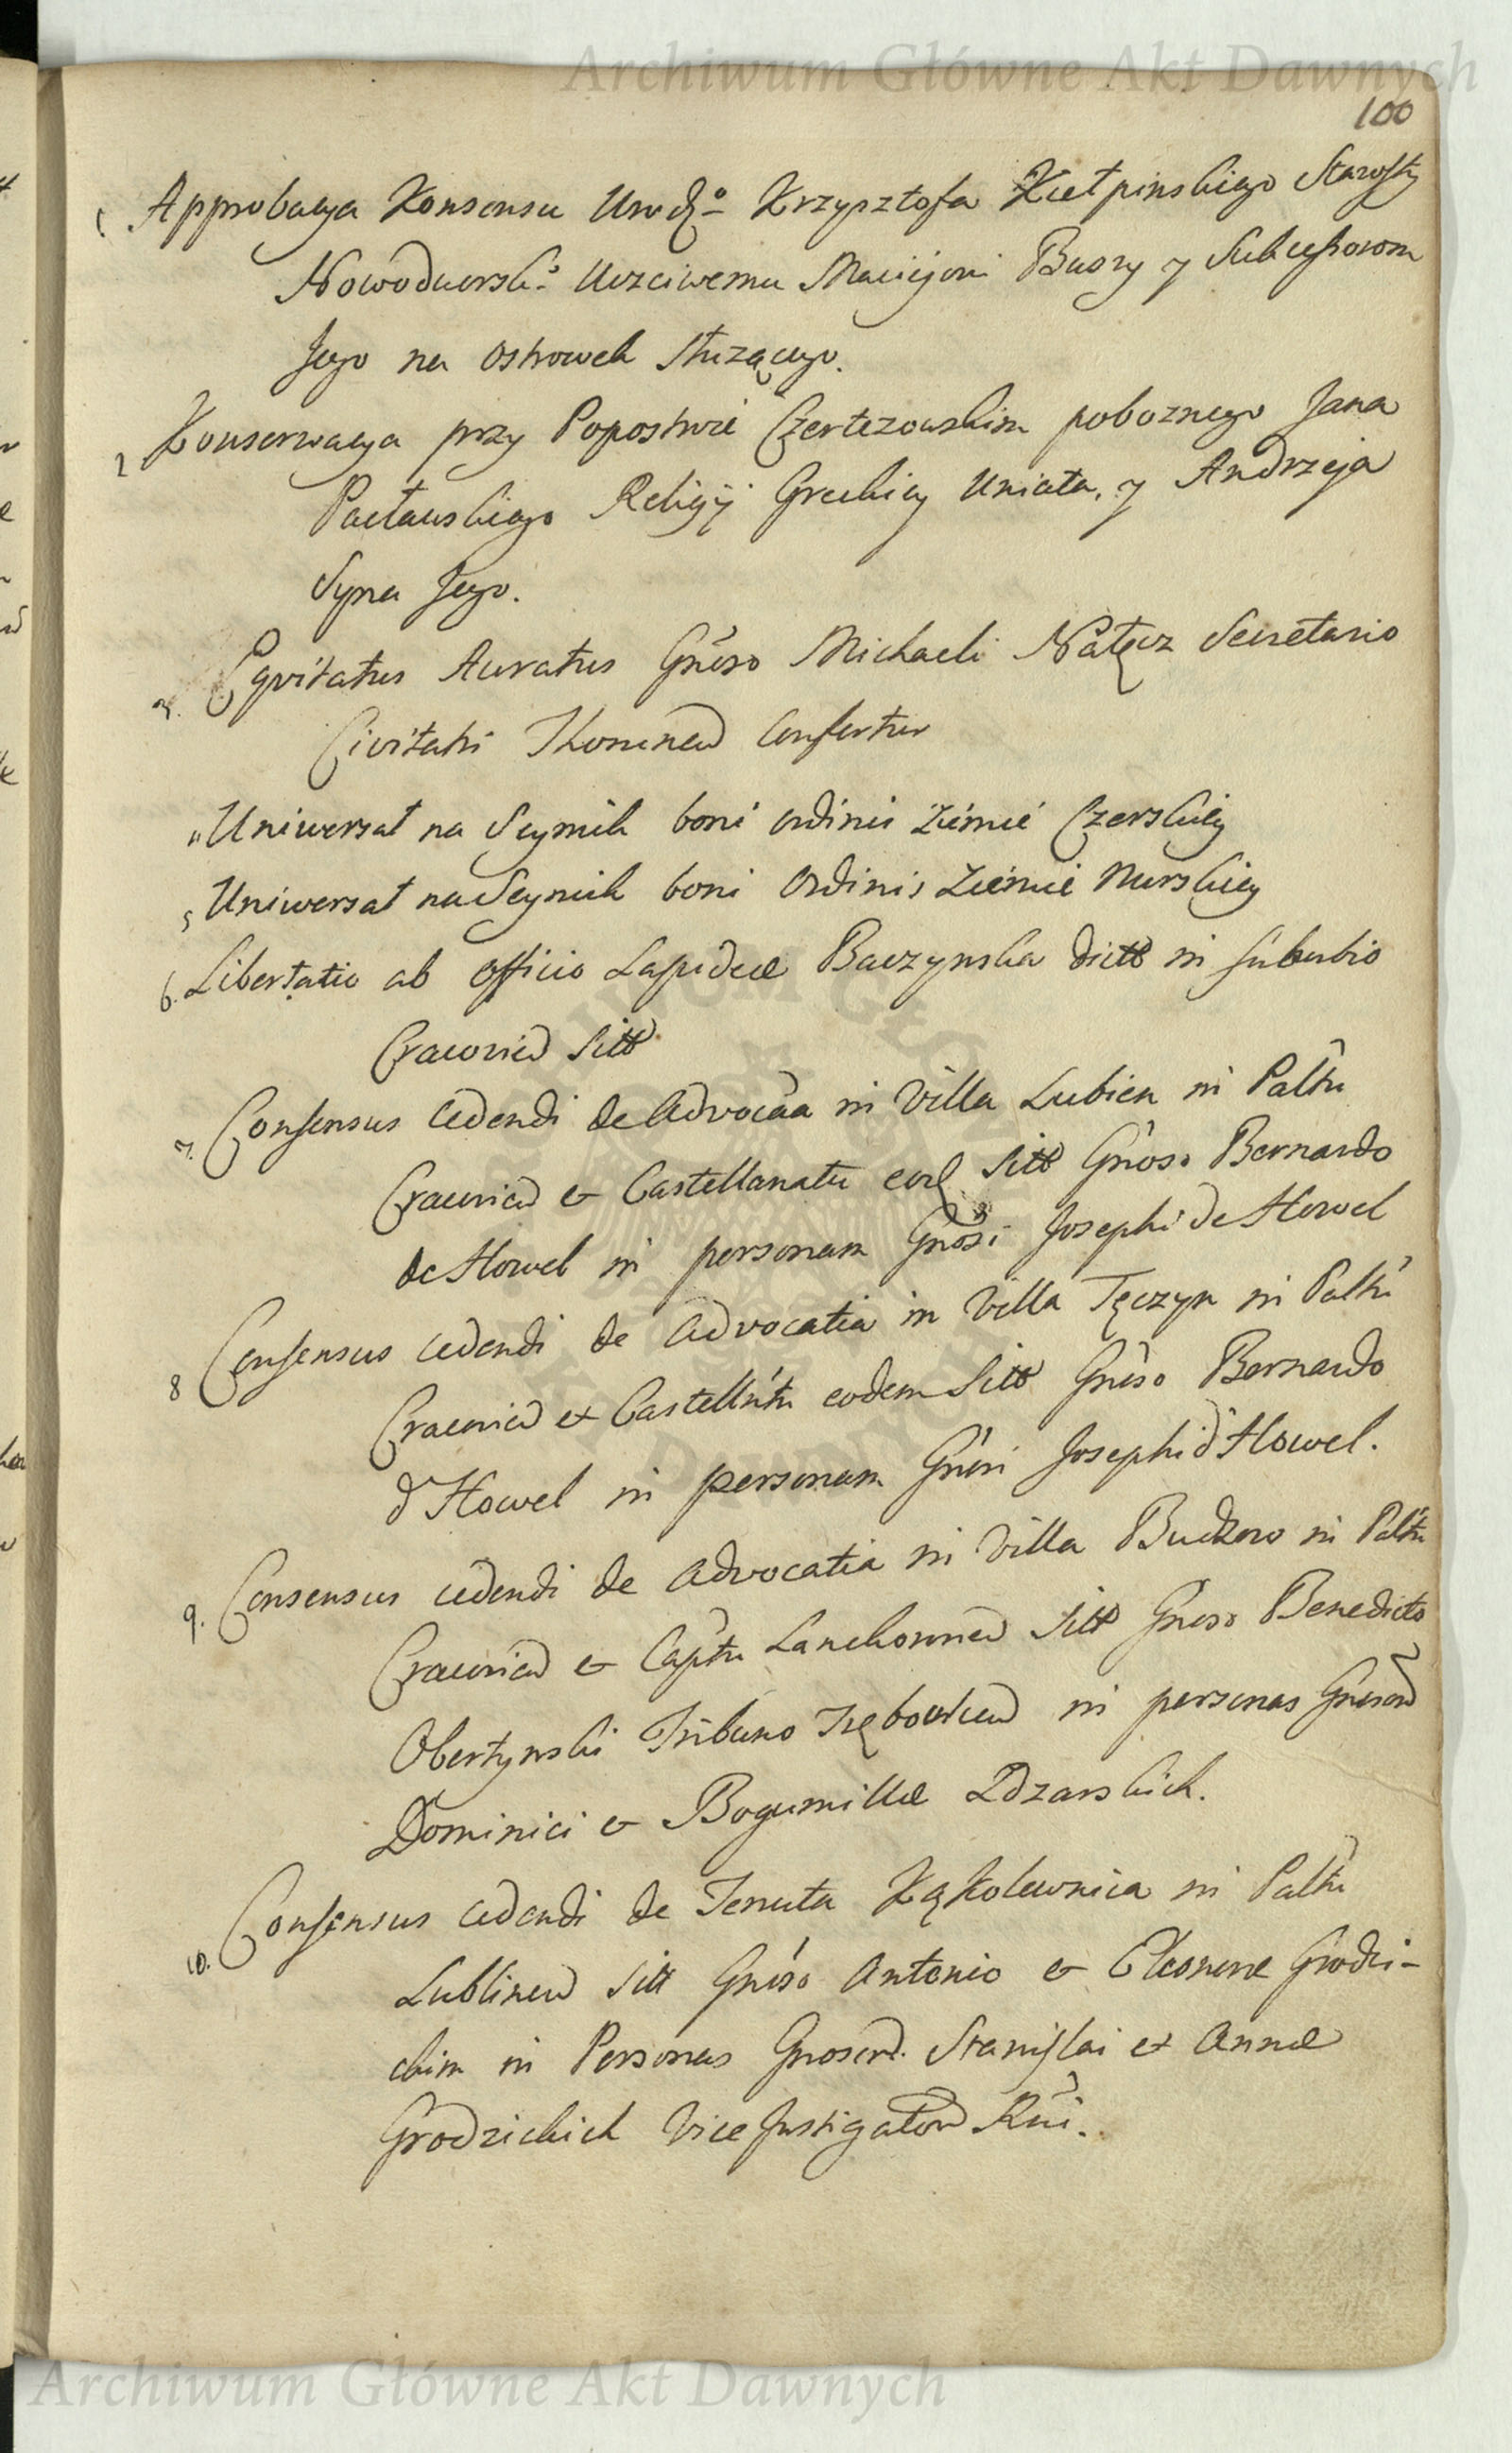 Archiwum Główne Akt Dawnych
100
1. Approbacya Konsensu Urodz.o Krzysztofa Kiełpinskiego Starosty
Nowodworsk.o Uczciwemu Maciejowi Buszy y Sukcessorom
Jego na Ostrowek służącego.
2 Konserwacya przy Popostwie Czertezowskim poboznego Jana
Pacławskiego Religij Greckiey Uniata, y Andrzeja
Syna Jego.
3. Equitatus Auratus Gnoso Michaeli Nałęcz Secretario
Civitatis Thorunen Confertur
4 Uniwersał na Seymik boni ordinis Ziemie Czerskiey
5 Uniwersał na Seymik boni Ordinis Ziemie Nurskiey
6. Libertatio ab officio Lapideae Baczynska dictae in suburbio
Cracovien sittae
7. Consensus cedendi de Advocaa in Villa Lubien in Palttu
Cracovien & Castellanatu eod sittae Gnoso Bernardo
de Howel in personam Gnosi Josephi de Howel
8 Consensus cedendi de Advocatia in Villa Tęczyn in Palttu
Cracovien et Castellntu eodem sittae Gnoso Bernardo
d'Howel in personam Gnosi Josephi d'Howel.
9. Consensus cedendi de Advocatia in Villa Budzow in Palttu
Cracovien & Captu Lanckoronen sittae Gnoso Benedicto
Obertynski Tribuno Trębowlen in personas Gnosor
Dominici & Bogumillae Zdzarskich.
10. Consensus cedendi de Tenuta Kąkolewnica in Palttu
Lublinen sitt Gnoso Antonio & Eleonorae Grodzi-
ckim in Personas Gnosor. Stanislai et Annae
Grodzickich Vice Instigator Rni.
Archiwum Główne Akt Dawnych